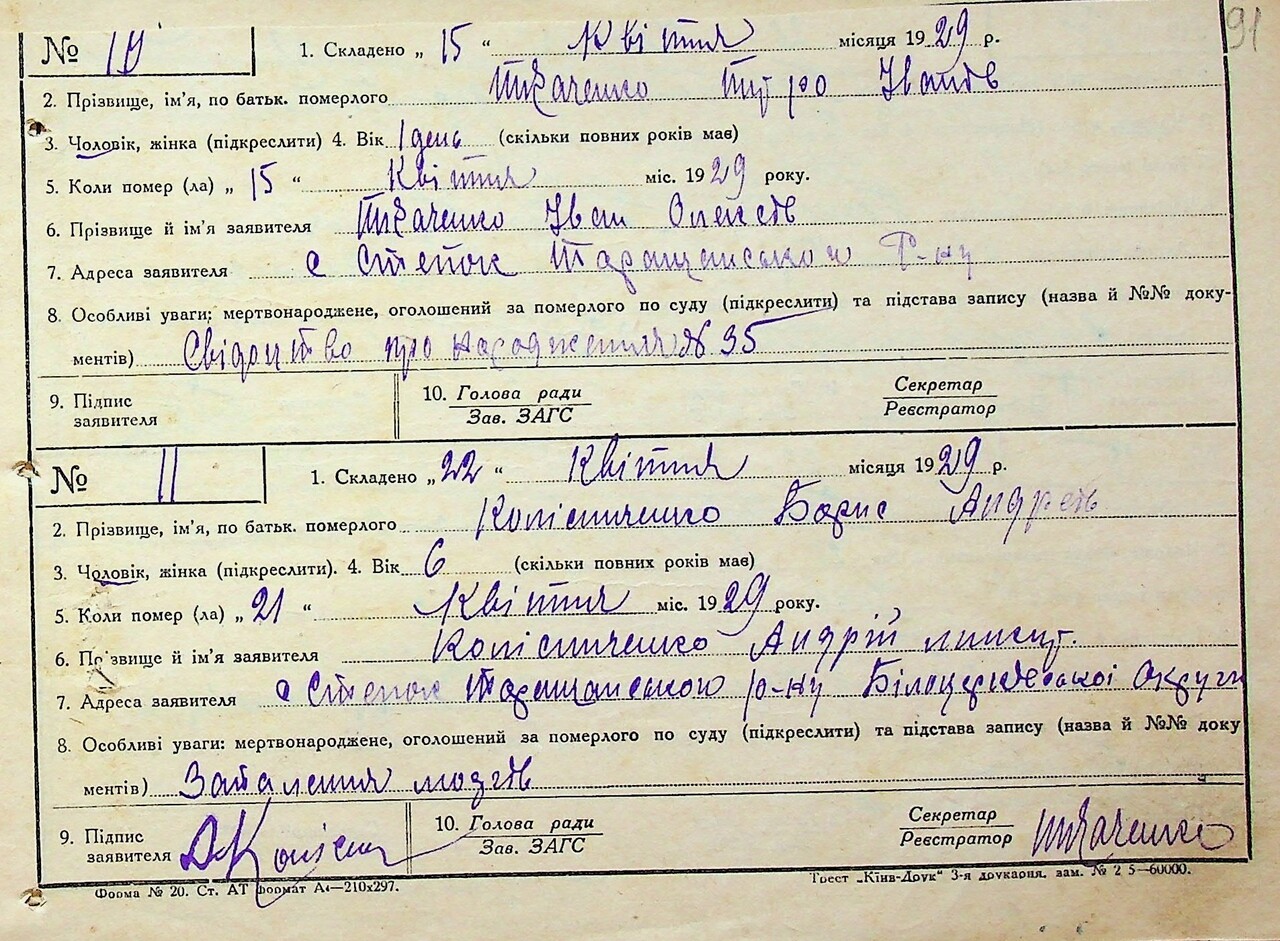 91
№ 10 1. Складено „ 15 “ Квітня місяця 1929 р.
2. Прізвище, ім’я, по батьк. померлого Ткаченко Іванов
3. Чоловік, жінка (підкреслити) 4. Вік 1 день (скільки повних років має)
5. Коли помер (ла) „ 15 “ Квітня міс. 1929 року.
6. Прізвище й ім’я заявителя Ткаченко Іван Олексів
7. Адреса заявителя с Степок Таращанського Р-ну
8. Особливі уваги: мертвонароджене, оголошений за померлого по суду (підкреслити) та підстава запису (назва й №№ доку-
ментів) Свідоцтво про народження № 35
9. Підпис заявителя 10. Голова ради Зав. ЗАГС Секретар Реєстратор
№ 11 1. Складено „ 22 “ Квітня місяця 1929 р.
2. Прізвище, ім’я, по батьк. померлого Колісниченко Борис Андреїв
3. Чоловік, жінка (підкреслити). 4. Вік 6 (скільки повних років має)
5. Коли помер (ла) „ 21 “ Квітня міс. 1929 року.
6. Прізвище й ім’я заявителя Колісниченко Андрій
7. Адреса заявителя с Степок Таращанського р-ну Білоцерківської Округи
8. Особливі уваги: мертвонароджене, оголошений за померлого по суду (підкреслити) та підстава запису (назва й №№ доку
ментів) Запалення мозгів
9. Підпис заявителя АКолісн 10. Голова ради Зав. ЗАГС Секретар Реєстратор Ткаченко
Форма № 20. Ст. АТ формат А4—210х297. Трест „Київ-Друк“ 3-я друкарня. зам. № 2 5—60000.